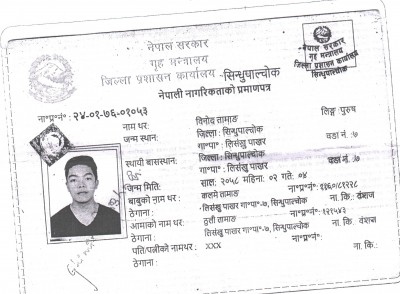 नेपाल सरकार
गृह मन्त्रालय
जिल्ला प्रशासन कार्यालय -सिन्धुपाल्चोक
नेपाली नागरिकताको प्रमाणपत्र
नेपाल सरकार
गृह मन्त्रालय
जिल्ला प्रशासन कार्यालय
सिन्धुपाल्चोक
ना॰प्र॰नं॰ : २४-०१-७६-०१०५३
नाम थर: विनोद तामाङ लिङ्ग: पुरुष
जन्म स्थान: जिल्ला: सिन्धुपाल्चोक
गा॰पा॰: लिसंखु पाखर वडा नं.:७
स्थायी बासस्थान: जिल्ला: सिन्धुपाल्चोक
गा॰पा॰: लिसंखु पाखर वडा नं.:७
जन्म मिति: साल: २०५८ महिना: ०२ गते: ०४
बाबुको नाम थर: ना॰प्र॰नं॰: ना. कि.: वंशज
ठेगाना: लिसंखु पाखर गा॰पा॰-७, सिन्धुपाल्चोक
आमाको नाम थर: तामाङ ना॰प्र॰नं॰: ना. कि.: वंशज
ठेगाना: लिसंखु पाखर गा॰पा॰-७, सिन्धुपाल्चोक
पति/पत्नीको नामथर: xxx ना॰प्र॰नं॰:
ठेगाना: ना. कि.: